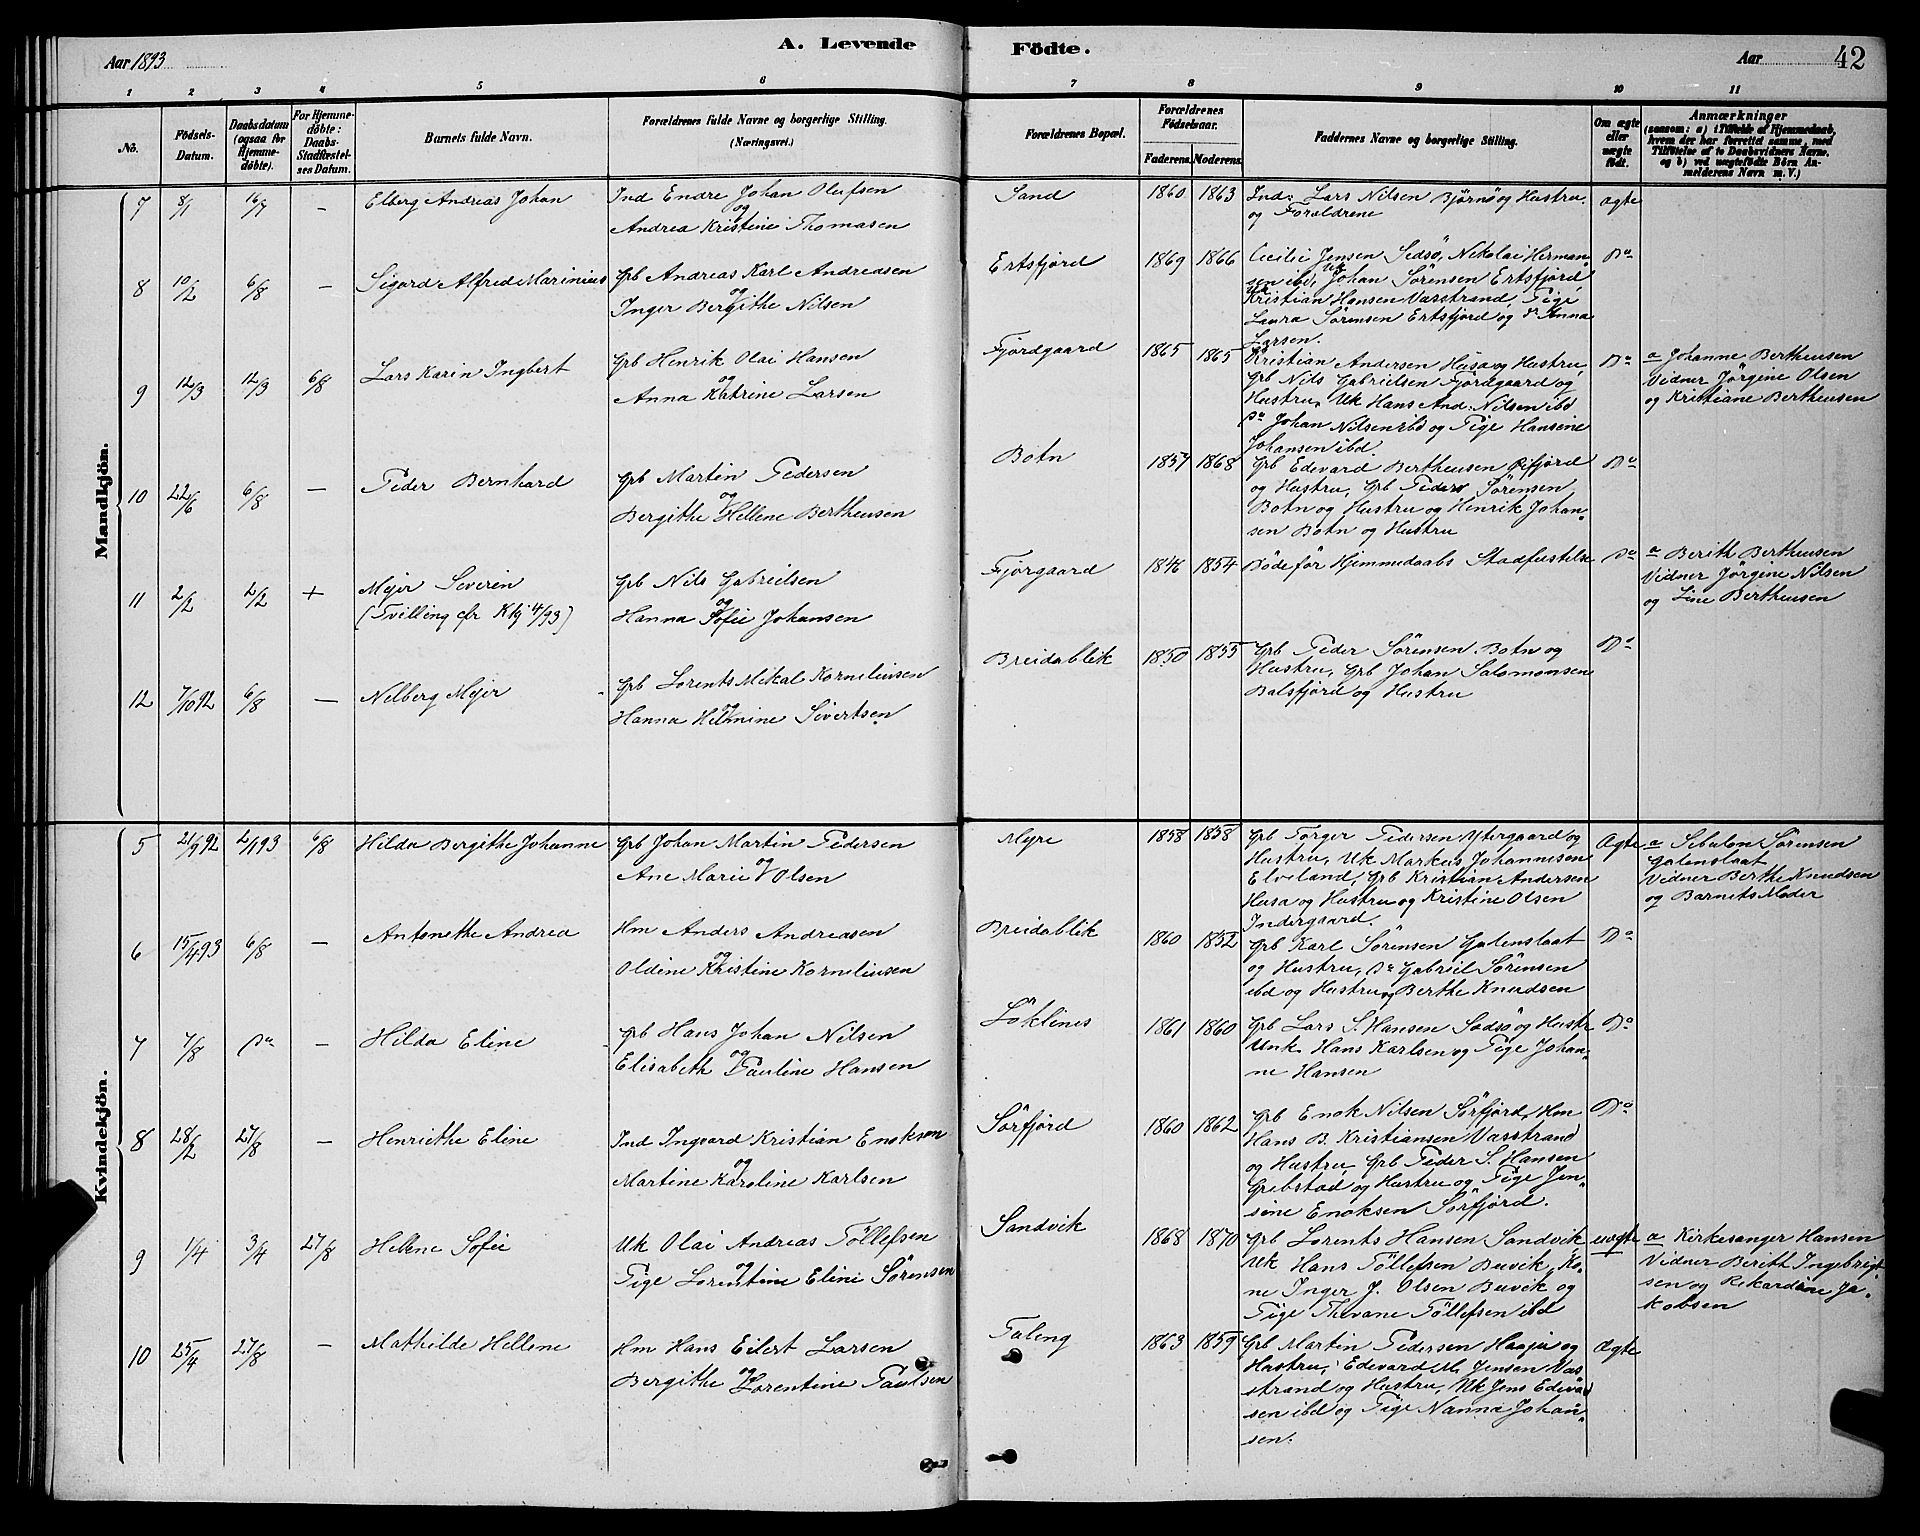 Aar 1893
A. Levende Födte.
Aar 42
1 2 3 4 5 6 7 8 9 10 11
No.
Födsels-Datum.
Daabsdatum (ogsaa for Hjemmedöbte).
For Hjemmedöbte: Daabs-Stadfæstelses Datum.
Barnets fulde Navn.
Forældrenes fulde Navne og borgerlige Stilling.
(Næringsvei.)
Forældrenes Bopæl.
Forældrenes Födselsaar.
Faderens. Moderens.
Faddernes Navne og borgerlige Stilling.
Om ægte eller uægte födt.
Anmærkninger
(saasom: a) i Tilfælde af Hjemmedaab, hvem der har forrettet samme, med Tilföielse af to Daabsvidners Navne, og b) ved uægtefödte Börn Anmelderens Navn m. V.)
Mandkjön.
7 8/1 16/7 — Elberg Andreas Johan
Ind Endre Johan Olufsen
og
Andrea Kristine Thomasen
Sand 1860 1863
Ind: Lars Nilsen Bjørnø og Hustru
og Forældrene
ægte
8 10/2 6/8 — Sigard Alfred Marinius
Grb Andreas Karl Andreasen
og
Inger Bergithe Nilsen
Ertsfjord 1869 1866
Cecilie Jensen Sedsø, Nikolai Herman-
sen ibd, Uk Johan Sörensen Ertsfjord
Uk Kristian Hansen Vasstrand, Pige
Laura Sörensen Ertsfjord og do Anna
Larsen.
Do
9 12/3 12/3 6/8 Lars Karin Ingbert
Grb Henrik Olai Hansen
og
Anna Katrine Larsen
Fjordgaard 1865 1865
Kristian Andersen Husa og Hustru,
Grb Nils Gabrielsen Fjordgaard og
Hustru, Uk Hans And: Nilsen ibd
Do Johan Nilsen ibd og Pige Hansine
Johansen ibd.
Do
a Johanne Bertheusen
Vidner Jörgine Olsen
og Kristiane Bertheusen
10 22/6 6/8 — Peder Bernhard
Grb Martin Pedersen
og
Bergithe Hellene Bertheusen
Botn 1857 1868
Grb Edevard Bertheusen Øifjord
og Hustru, Grb Peder Sörensen
Botn og Hustru og Henrik Johan-
sen Botn og Hustru
Do
11 2/2 2/2 + Mejer Severin
(Tvilling cfr Kkj 4/93)
Grb Nils Gabrielsen
og
Hanna Sofie Johansen
Fjorgaard 1846 1854
Döde för Hjemmedaabs Stadfæstelse
Do
a Berith Bertheusen
Vidner Jörgine Nilsen
og Line Bertheusen
12 7/10 92 6/8 — Nelberg Mejer
Grb Lorents Mikal Kornelinsen
og
Hanna Helmine Sivertsen
Breidablik 1850 1855
Grb Peder Sörensen Botn og
Hustru, Grb Johan Salomonsen
Balsfjord og Hustru
Do
Kvindekjön.
5 21/9 92 2/1 93 6/8 Hilda Bergithe Johanne
Grb Johan Martin Pedersen
og
Ane Marie Olsen
Myre 1858 1858
Grb Torger Pedersen Ytergaard og
Hustru, Uk Markus Johannesen
Elveland, Grb Kristian Andersen
Husa og Hustru og Kristine Olsen
Indergaard.
Ægte
a Sebulon Sörensen
Galenslaat
Vidner Berthe Knudsen
og Barnets Moder
6 15/4 93 6/8 — Antonethe Andrea
Hm Anders Andreasen
og
Oldine Kristine Kornelinsen
Breidablik 1860 1852
Grb Karl Sörensen Galenslaat
og Hustru, Do Gabriel Sörensen
ibd og Hustru og Berthe Knudsen
Do
7 7/8 Do — Hilda Eline
Grb Hans Johan Nilsen
og
Elisabeth Pauline Hansen
Löklines 1861 1860
Grb Lars S. Hansen Sadsø og Hustr
Unk Hans Karlsen og Pige Johan-
ne Hansen
Do
8 28/2 27/8 — Henriethe Eline
Ind Ingvard Kristian Enoksen
og
Martine Karoline Karlsen
Sörfjord 1860 1862
Grb Enok Nilsen Sörfjord, Hm
Hans B. Kristiansen Vasstrand
og Hustru, Grb Peder S. Hansen
Grebstad og Hustru og Pige Jen-
sine Enoksen Sörfjord.
Do
9 1/4 3/4 27/8 Hellene Sofie
Uk Olai Andreas Töllefsen
og
Pige Lorentine Eline Sörensen
Sandvik 1868 1870
Grb Lorents Hansen Sandvik
Uk Hans Töllefsen Buvik, Ko-
ne Inger J. Olsen Buvik og
Pige Thevane Töllefsen ibd
uægte
a Kirkesanger Hansen
Vidner Beritt Ingebrigt
sen og Rekardine Ja-
kobsen
10 25/4 27/8 — Mathilde Hellene
Hm Hans Eilert Larsen
og
Bergithe Lorentine Paulsen
Taling 1863 1859
Grb Martin Pedersen Haaja og
Hustru, Edevard M. Jensen Vas-
strand og Hustru, Uk Jens Edevard
sen ibd og Pige Nanna Johan-
sen.
Ægte